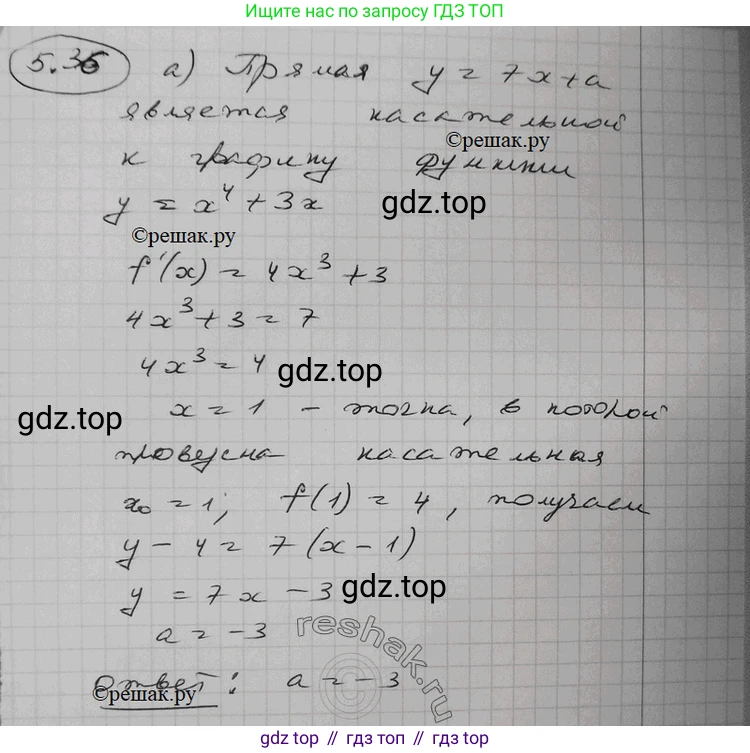 Ищите нас по запросу ГДЗ ТОП
5.36 а) Прямая y = 7x + a
является касательной
©решак.ру
к графику функции
y = x⁴ + 3x gdz.top
©решак.ру
f'(x) = 4x³ + 3
4x³ + 3 = 7
4x³ = 4 gdz.top
gdz.top
x = 1 – точка, в которой
проведена касательная
x₀ = 1; f(1) = 4, получаем
y – 4 = 7(x – 1)
y = 7x – 3 gdz.top
a = –3 reshak.ru
Ответ: a = –3
©решак.ру
gdz top // гдз топ // gdz.top